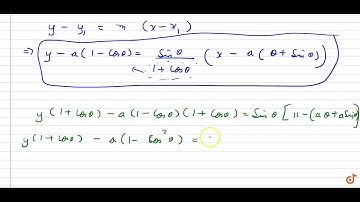 y - y₁ = m (x - x₁)
⇒ y - a(1 - cosθ) = sinθ / (1 + cosθ) (x - a(θ + sinθ))
y(1 + cosθ) - a(1 - cosθ)(1 + cosθ) = sinθ [x - (aθ + a sinθ)]
y(1 + cosθ) - a(1 - cos²θ) =